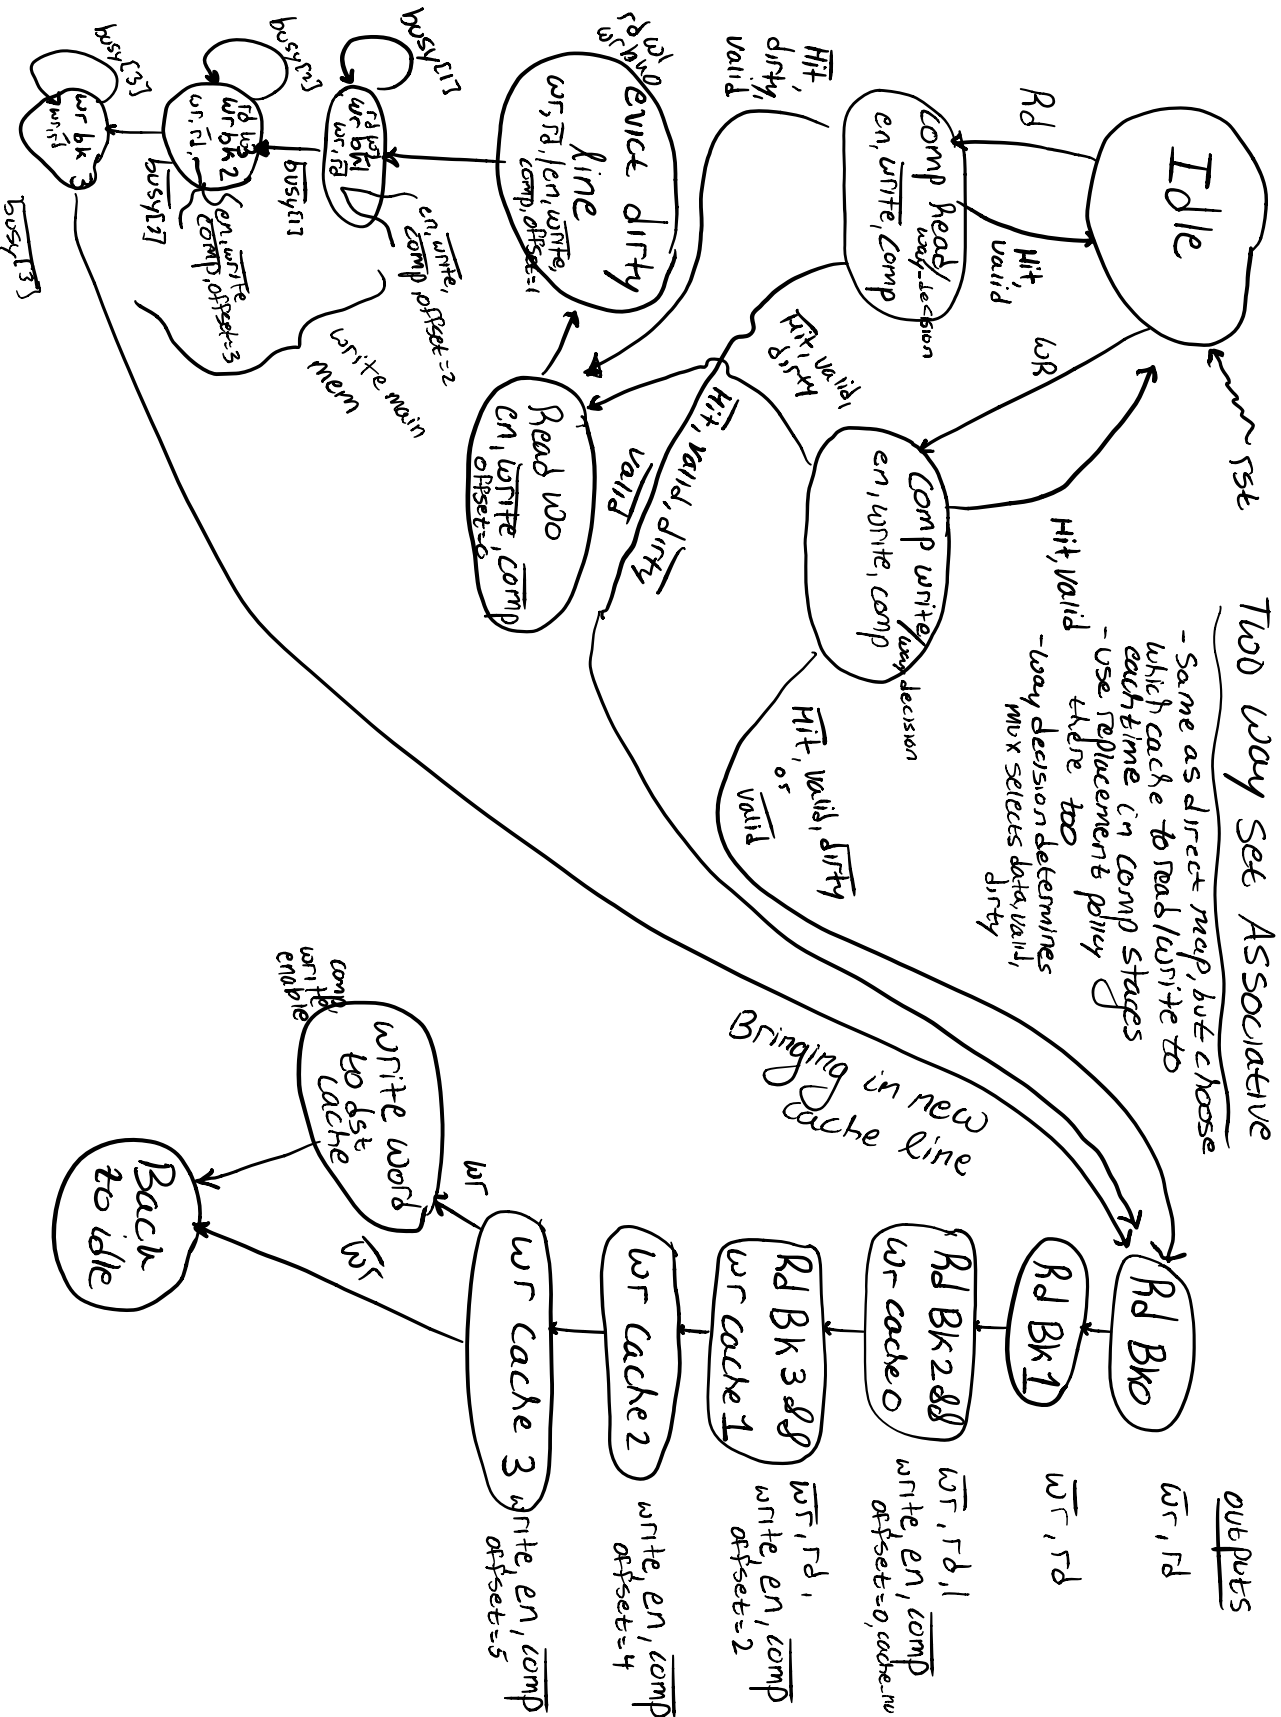 Two Way Set Associative
- Same as direct map, but choose
which cache to read/write to
each time in comp stages
- use replacement policy
there too
- way decision determines
mux selects data, valid,
dirty
rst
Idle
Rd
Hit,
valid
WR
Hit, valid
Comp Read/
way-decision
en, w̅r̅i̅t̅e̅, comp
Comp write/
way decision
en, write, comp
H̅i̅t̅,
dirty,
valid
H̅i̅t̅, valid,
dirty
H̅i̅t̅, valid, d̅i̅r̅t̅y̅
v̅a̅l̅i̅d̅
H̅i̅t̅, valid, d̅i̅r̅t̅y̅
or
v̅a̅l̅i̅d̅
Read W0
en, w̅r̅i̅t̅e̅, c̅o̅m̅p̅
offset=0
evict dirty
line
wr, r̅d̅ / en, w̅r̅i̅t̅e̅,
comp, offset=1
rd w1
wr bk0
busy[1]
rd w2
wr bk1
wr, r̅d̅
en, w̅r̅i̅t̅e̅,
c̅o̅m̅p̅, offset=2
b̅u̅s̅y̅[1]
busy[2]
rd w3
wr bk2
wr, r̅d̅,
en, w̅r̅i̅t̅e̅
c̅o̅m̅p̅, offset=3
b̅u̅s̅y̅[2]
busy[3]
wr bk
3
wr, r̅d̅
b̅u̅s̅y̅[̅3̅]̅
write main
mem
Bringing in new
cache line
outputs
Rd Bk0
w̅r̅, rd
Rd Bk1
w̅r̅, rd
Rd Bk2 &&
wr cache 0
w̅r̅, rd,
write, en, c̅o̅m̅p̅
offset=0,
Rd Bk3 &&
wr cache 1
w̅r̅, rd,
write, en, c̅o̅m̅p̅
offset=2
wr cache 2
write, en, c̅o̅m̅p̅
offset=4
wr cache 3
write, en, c̅o̅m̅p̅
offset=5
wr
w̅r̅
write word
to dst
cache
comp,
write,
enable
Back
to idle